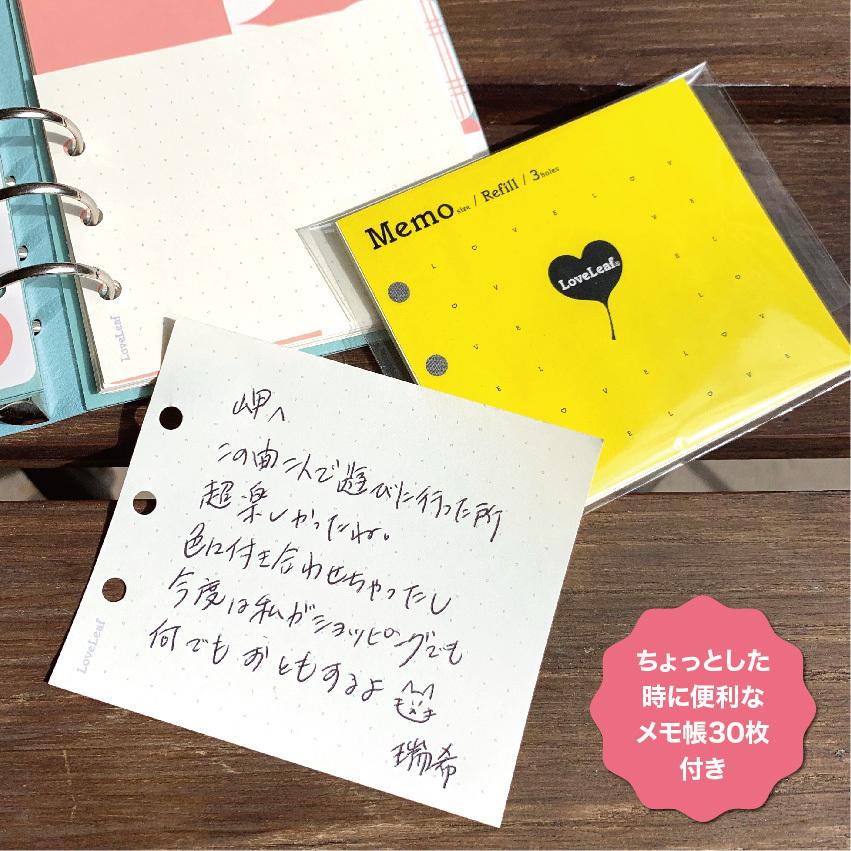 LoveLeaf
Memo size / Refill / 3holes
L O V E L O V E
LoveLeaf®
岬へ
この間二人で遊びに行った所
超楽しかったね。
色々付き合わせちゃったし
今度は私がショッピングでも
何でもおともするよ
瑞希
LoveLeaf
ちょっとした
時に便利な
メモ帳30枚
付き